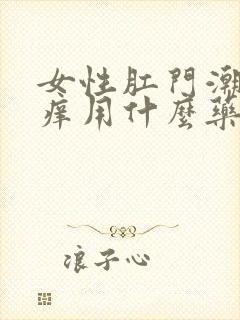 女性肛門潮
痒用什麼藥
浪子心